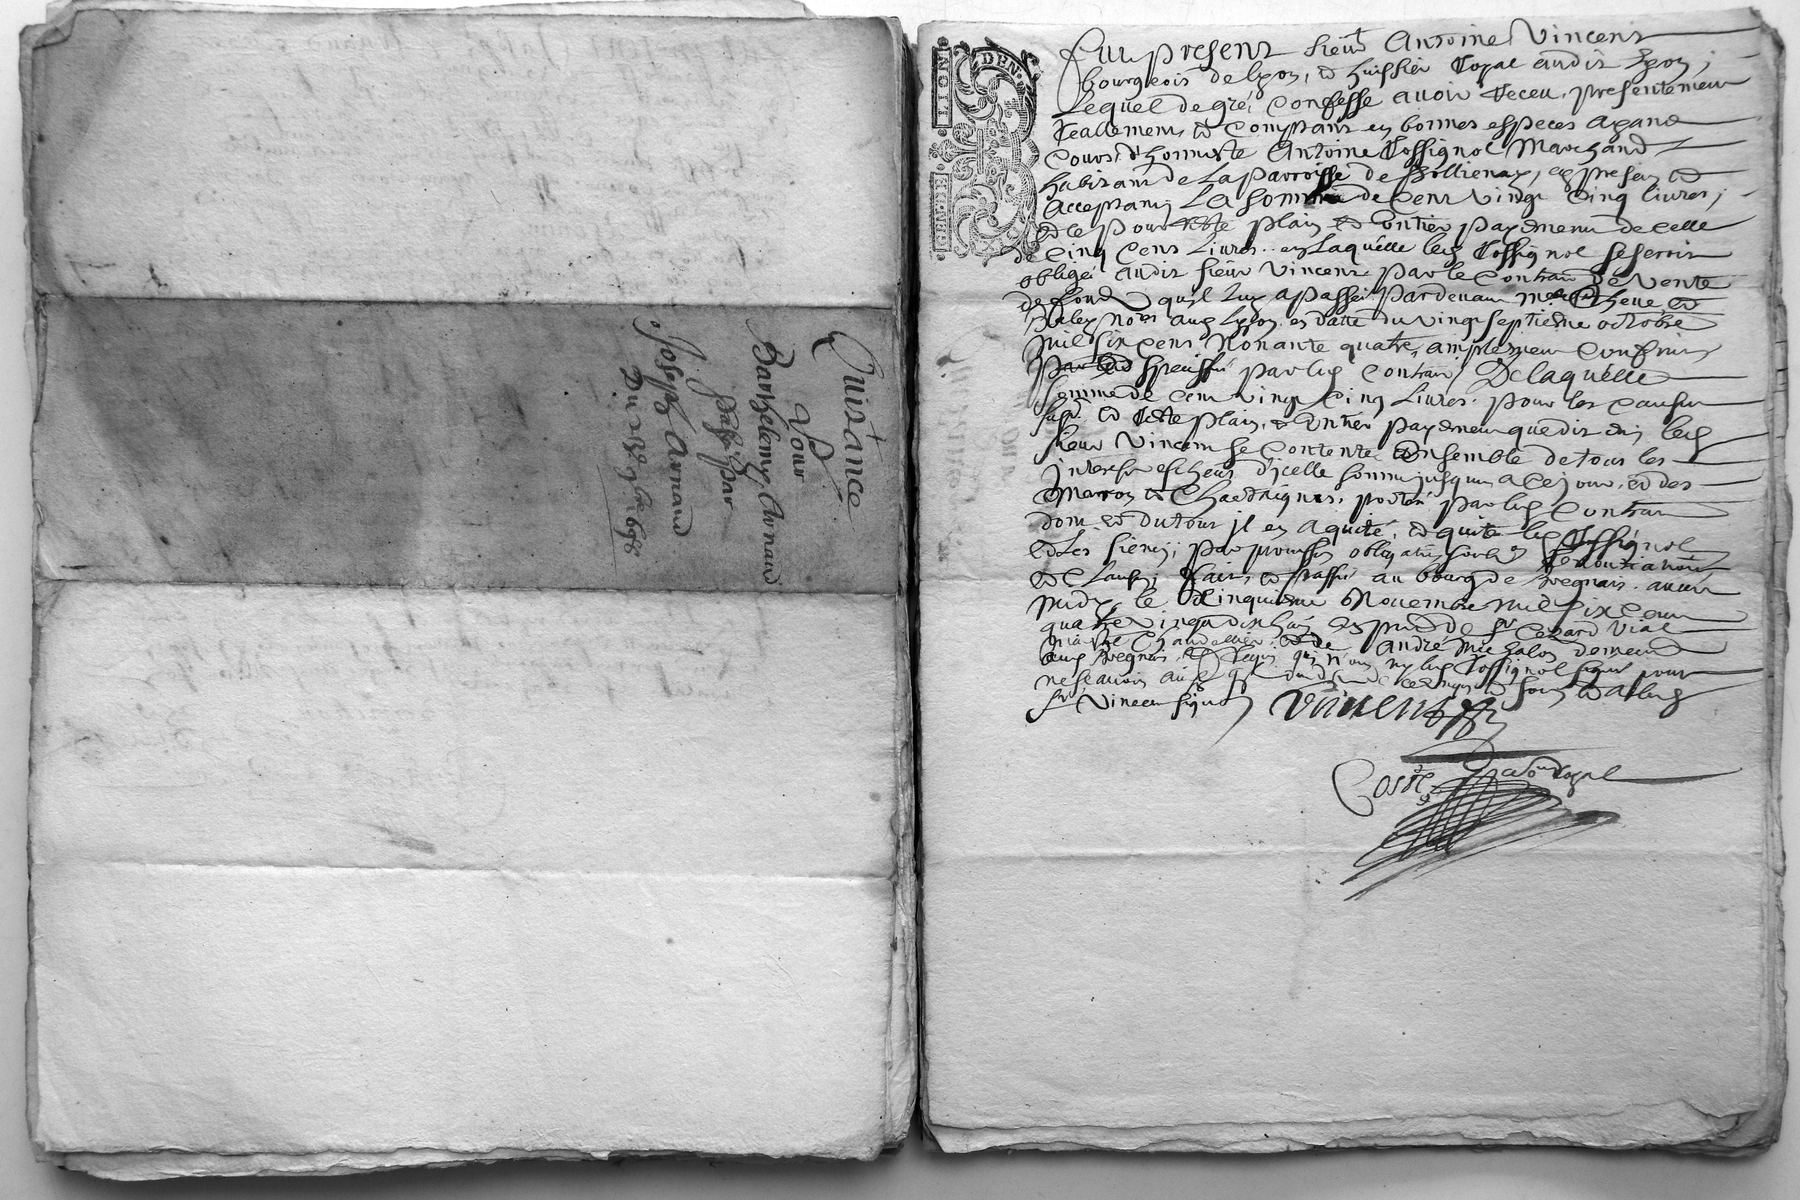 Quistance
Pour
Barthelemy Arnaud
passé par
Joseph Arnaud
GEN. DE LION
DEN.
Fut present sieur Antoine Vincent
bourgeois de lyon, & huissier Royal audit lyon;
Lequel de gré, Confesse auoir Receu, presentement
Reallement & Comptant en bonnes especes ayand
cours, d'honneste Antoine Rossignol Marchand
habitant de La parroisse de Pollienay, cy present &
acceptant, La somme de Cent vingt Cinq liures,
& ce pour reste plain & Entier payement de celle
de Cinq Cens Liures, en Laquelle led Rossignol seseroit
obligé audit sieur Vincent par le Contrat de vente
de fond quil luy a passé pardeuant
no.res aud lyon en datte du vingt septieme octobre
mil six cens Nonante quatre, amplement
specifié par led Contrat, De laquelle
somme de cent vingt Cinq Liures, pour les causes
susd & Reste plain, & Entier payement que dit est, led
sieur Vincent se contente, Ensemble de tous les
interests escheus d'icelle somme jusques a ce jour, & des
portés par led Contrat
dont & du tout jl en a quité, & quite led Rossignol
& Les siens, par promesse obligation
& Clauses, fait & passé au bourg de Bregnais, auant
midy le Cinquieme Nouembre mil six Cent
quatre vingt dix huit, en pnce de Sr Cesard Vial
& de André Michalon demeurt
aud Bregnais,
ne scauoir
Sr Vincent signé
Vincent
Coste Royal